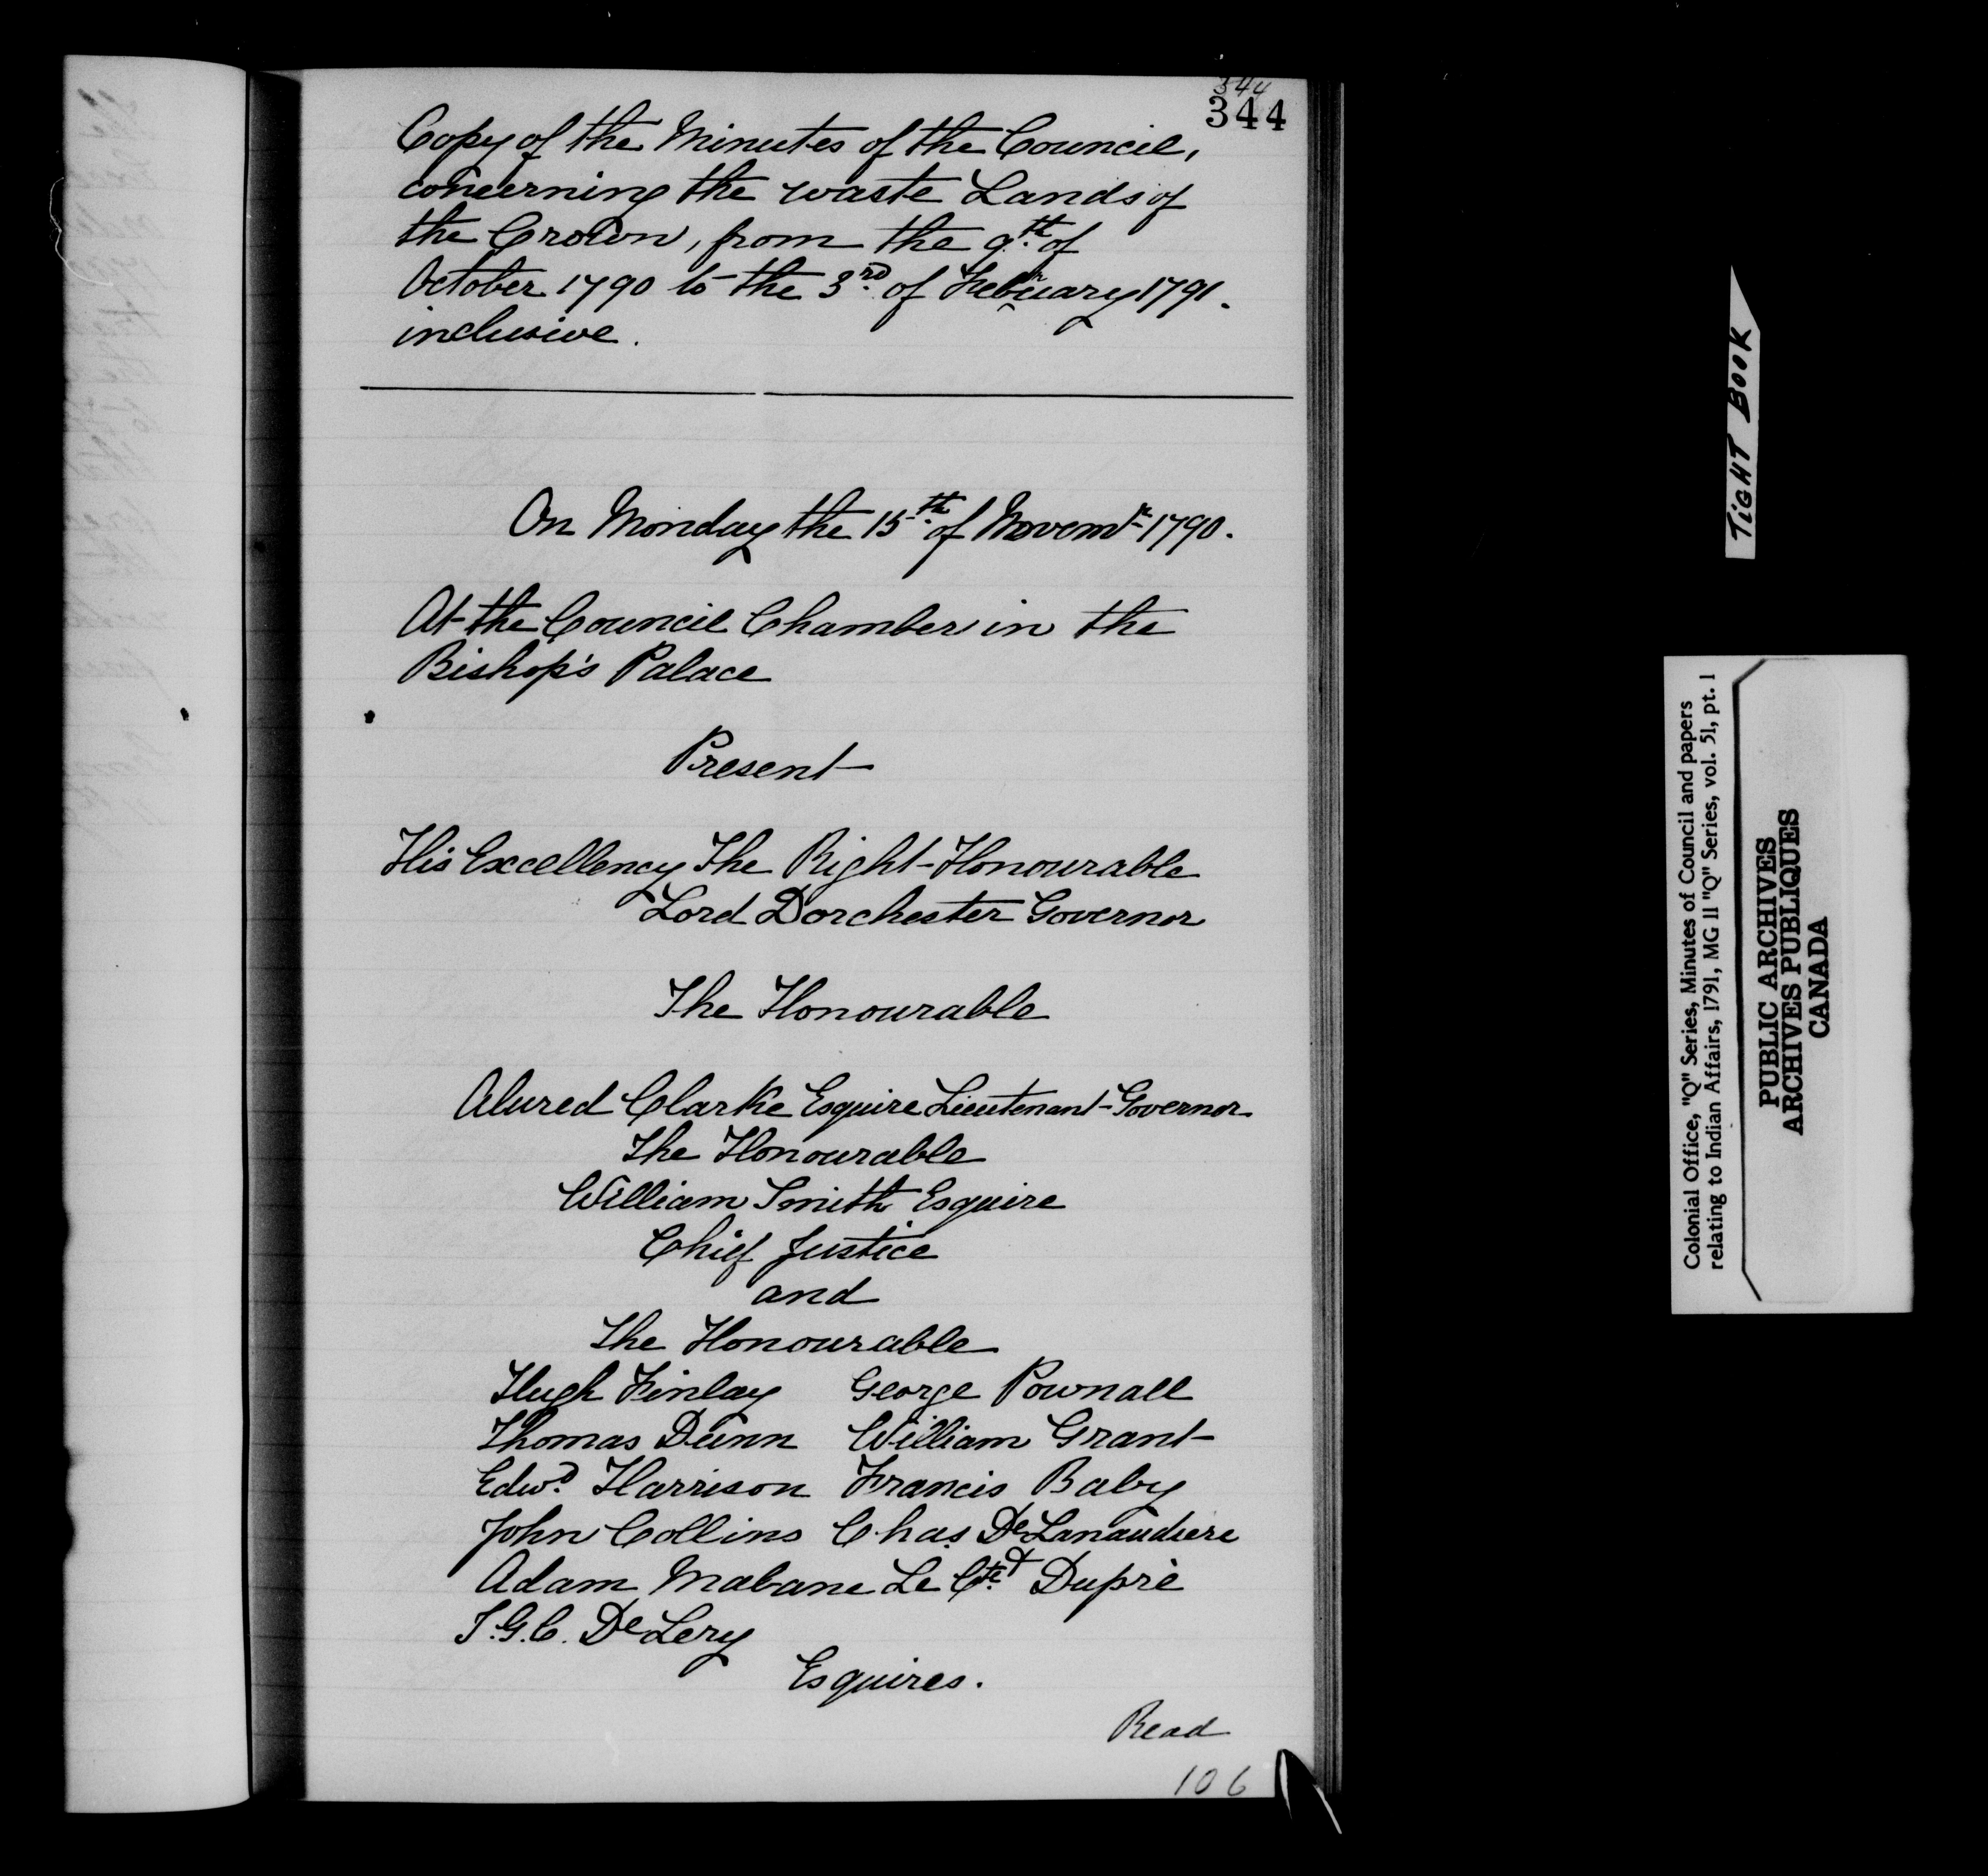 344
344
Copy of the Minutes of the Council,
concerning the waste Lands of
the Crown, from the 9th. of
October 1790 to the 3rd. of February 1791.
inclusive.
On Monday the 15th. of Novemr 1790.
At the Council Chamber in the
Bishop's Palace
Present
His Excellency The Right Honourable
Lord Dorchester Governor
The Honourable
Alured Clarke Esquire Lieutenant-Governor
The Honourable
William Smith Esquire
Chief Justice
and
The Honourable
Hugh Finlay George Pownall
Thomas Dunn William Grant
Edwd. Harrison Francis Baby
John Collins Chas. De Lanaudiere
Adam Mabane Le Cte. Dupré
J.G.C. De Lery
Esquires.
Read
106
TIGHT BOOK
Colonial Office, "Q" Series, Minutes of Council and papers
relating to Indian Affairs, 1791, MG 11 "Q" Series, vol. 51, pt. 1
PUBLIC ARCHIVES
ARCHIVES PUBLIQUES
CANADA